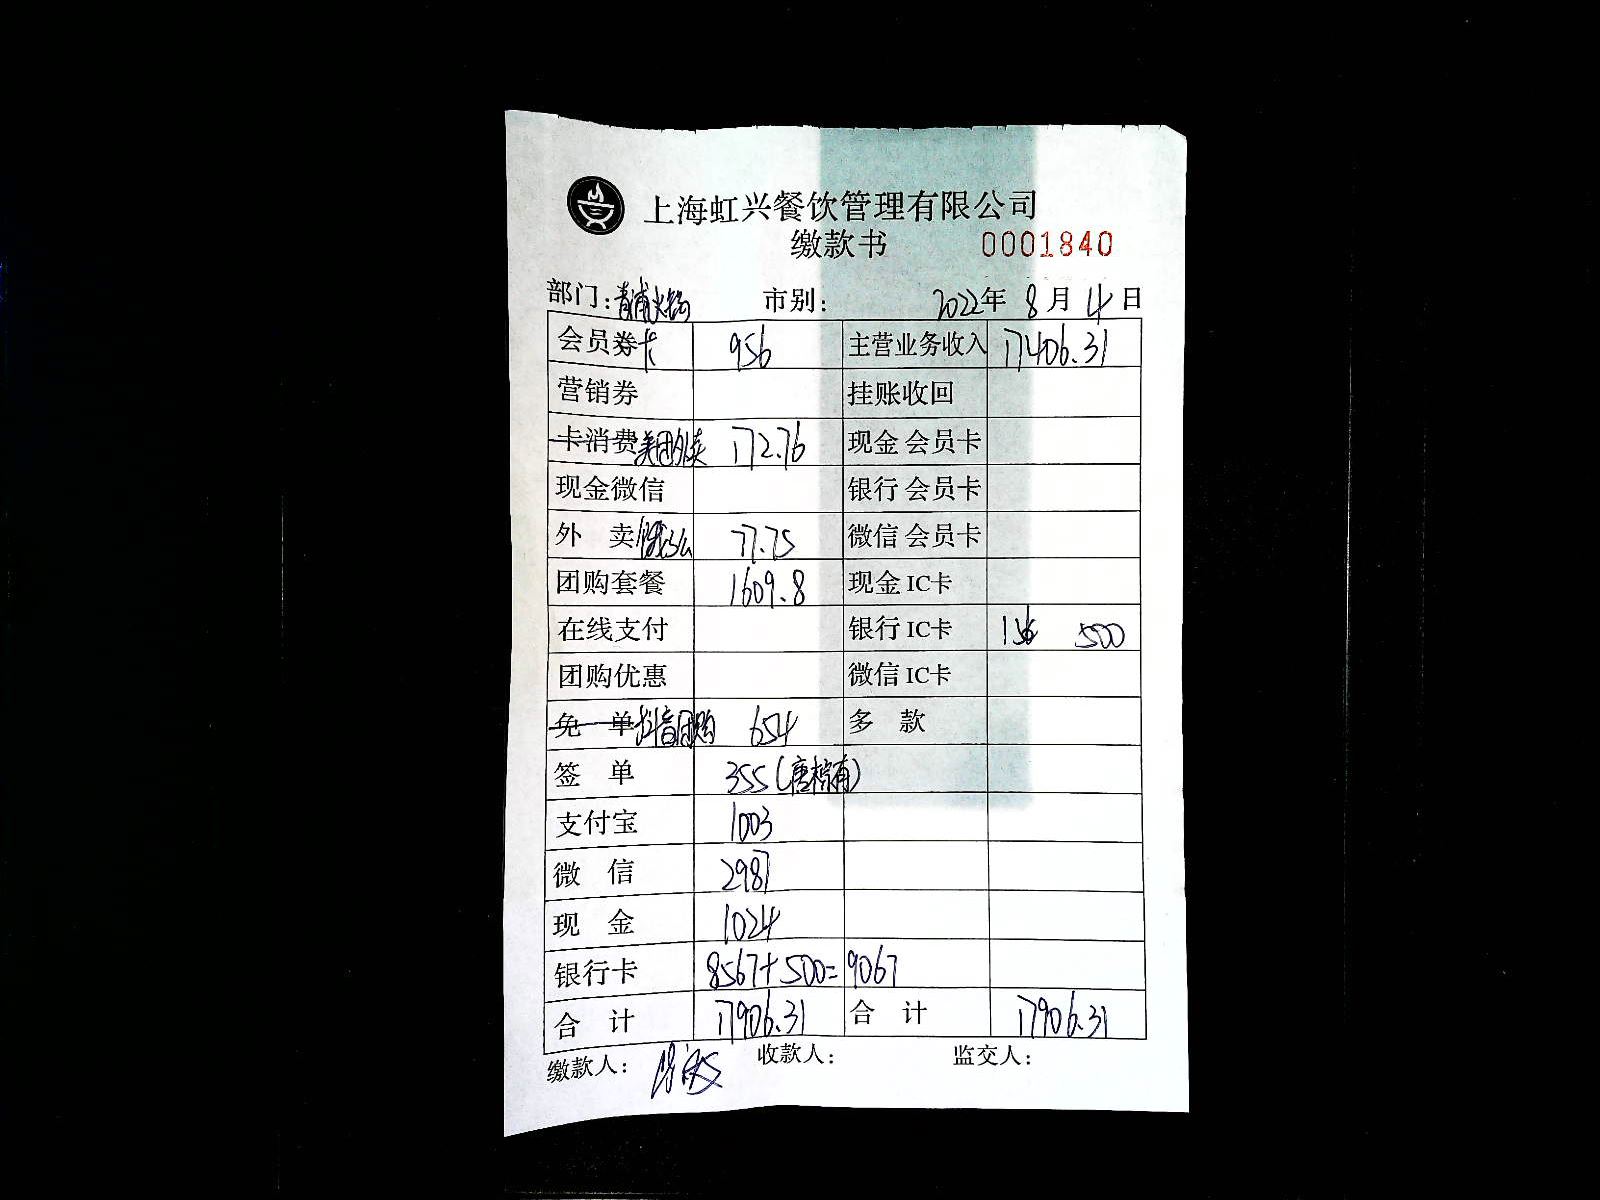 上海虹兴餐饮管理有限公司
缴款书 0001840
部门:青浦火锅 市别: 2022年 8月 4日
会员券卡 956 主营业务收入 17406.31
营销券 挂账收回
卡消费美团外卖 172.76 现金 会员卡
现金微信 银行 会员卡
外 卖饿了么 77.75 微信 会员卡
团购套餐 1609.8 现金 IC卡
在线支付 银行 IC卡 156 500
团购优惠 微信 IC卡
免 单抖音团购 654 多 款
签 单 355(唐 有)
支付宝 1003
微 信 2987
现 金 1024
银行卡 8567+500=9067
合 计 17906.31 合 计 17906.31
缴款人: 收款人: 监交人: